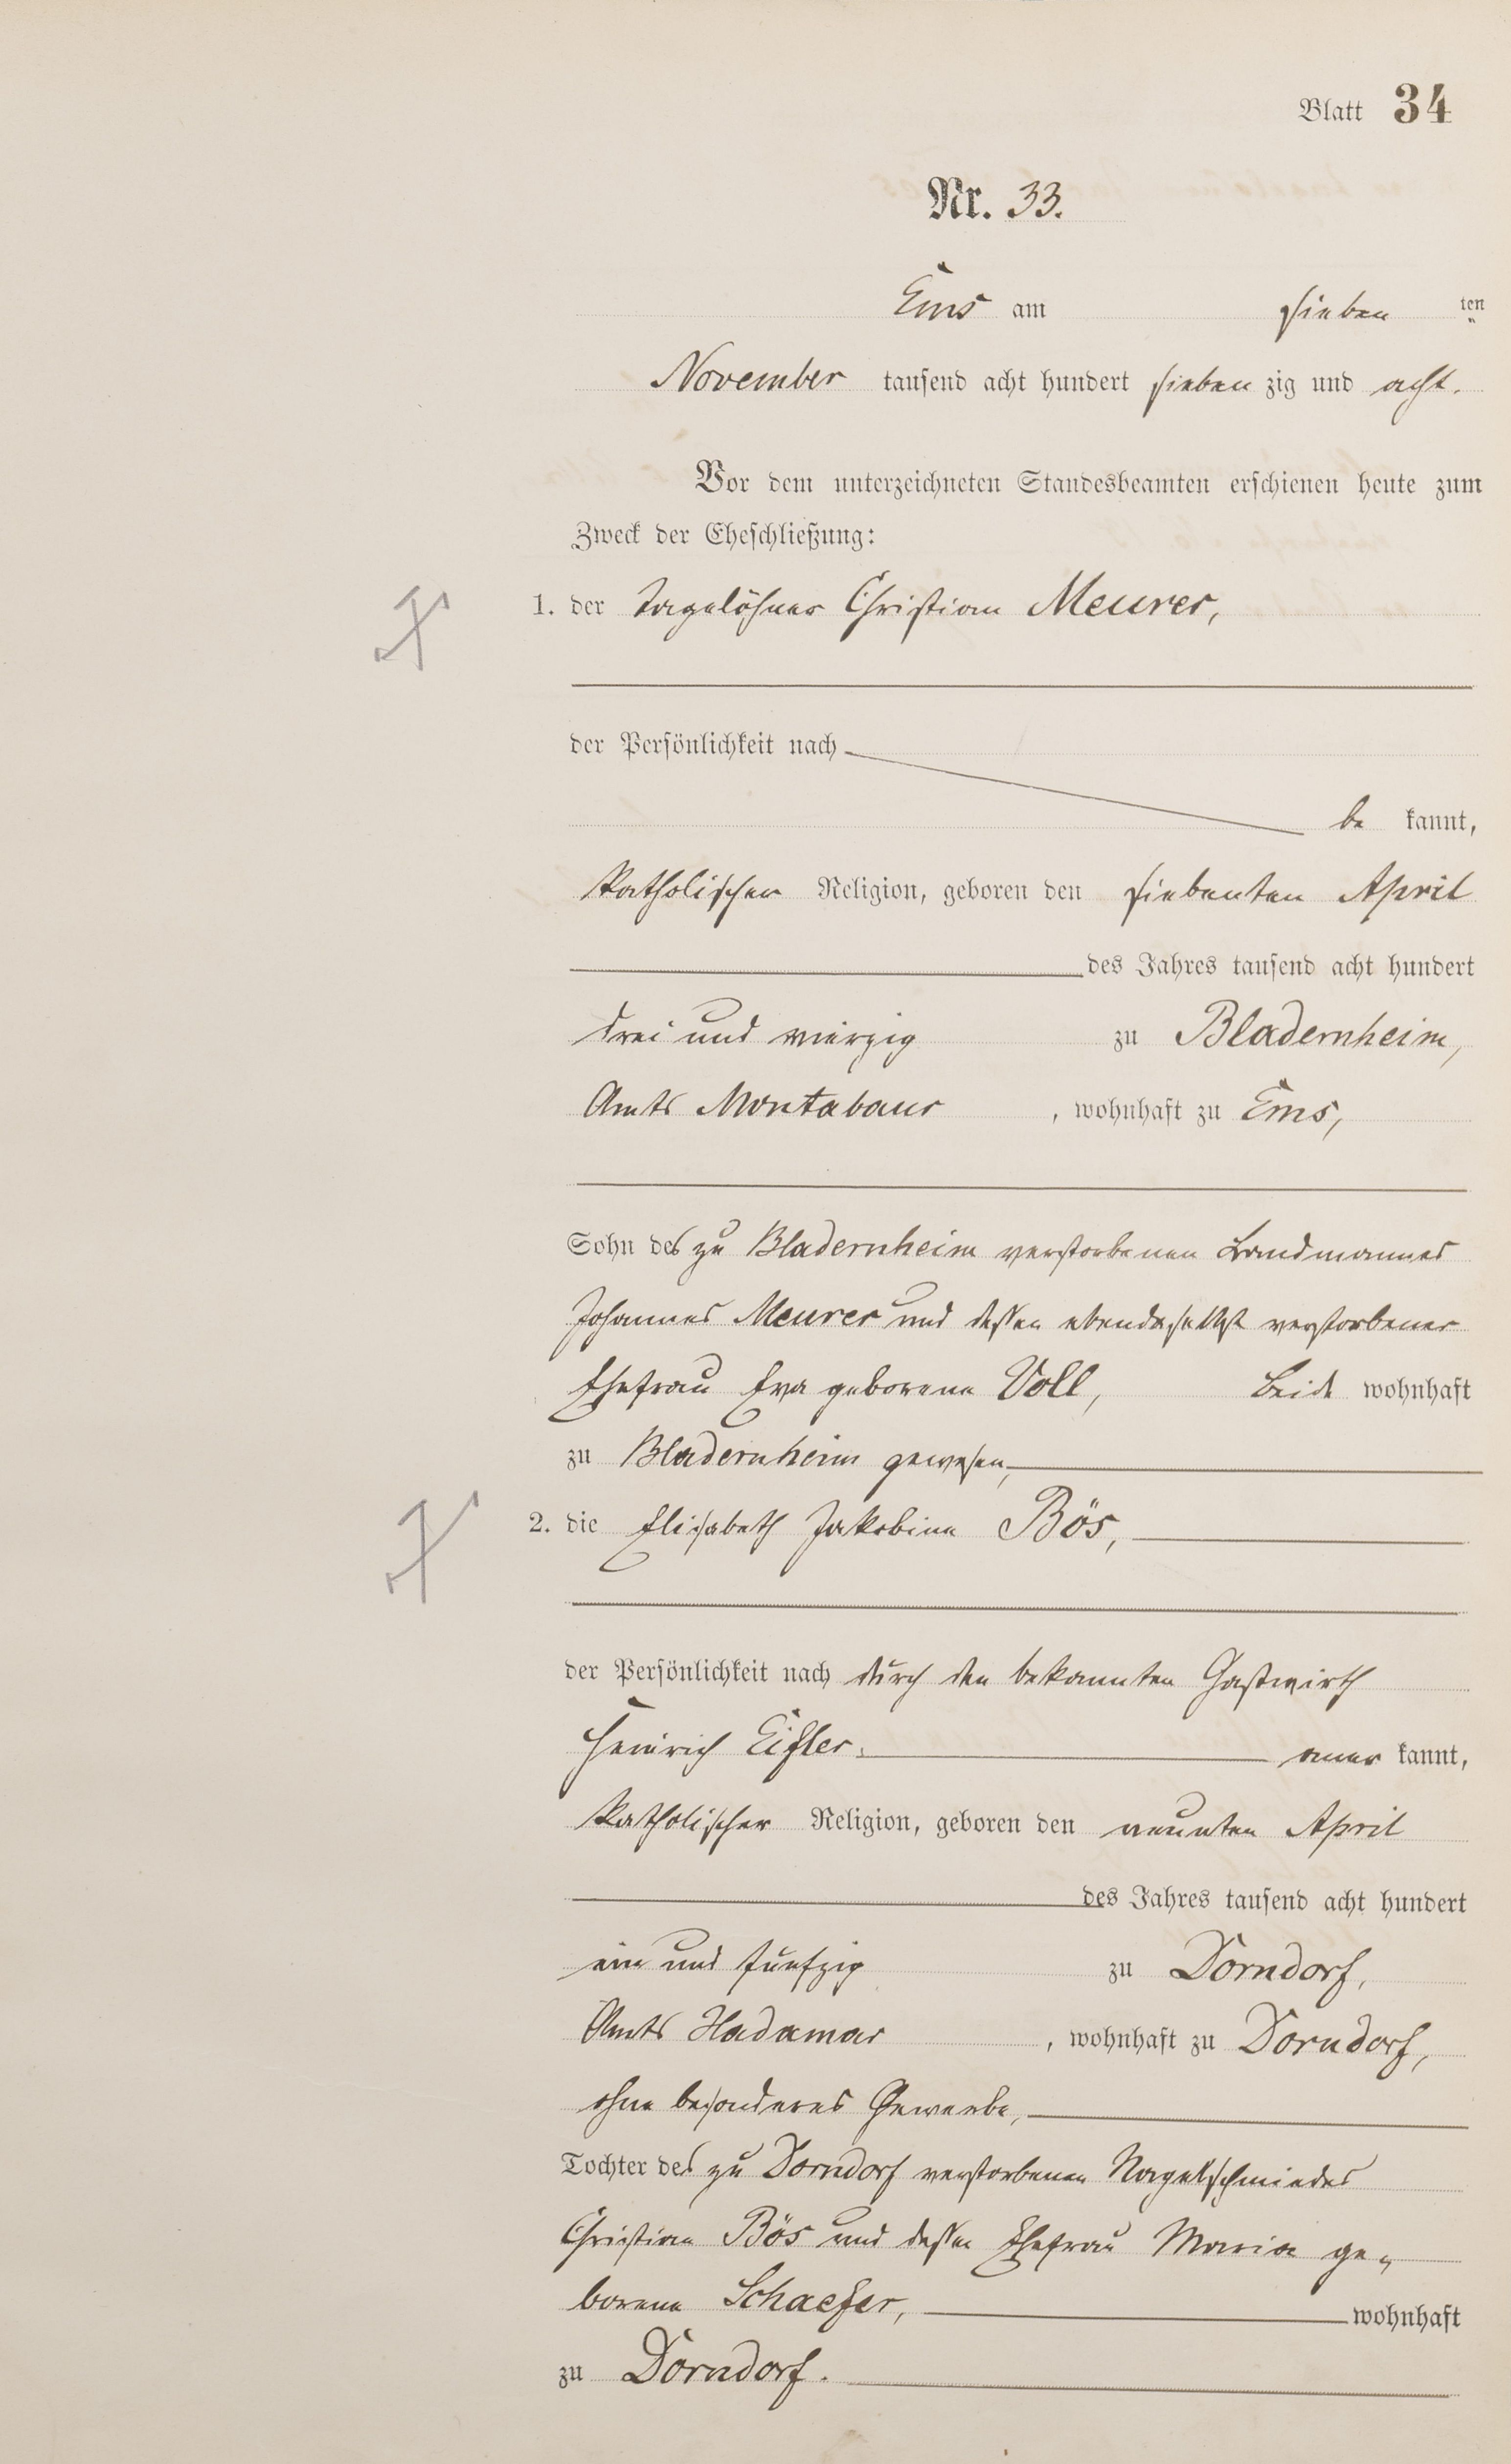 Blatt 34
Nr. 33.
Ems am sieben ten
November tausend acht hundert sieben zig und acht.
Vor dem unterzeichneten Standesbeamten erschienen heute zum
Zweck der Eheschließung:
1. der Tagelöhner Christian Meurer,
der Persönlichkeit nach
be kannt,
katholischer Religion, geboren den siebenten April
des Jahres tausend acht hundert
drei und vierzig zu Bladernheim,
Amts Montabaur , wohnhaft zu Ems,
Sohn des zu Bladernheim verstorbenen Landmannes
Johannes Meurer und dessen ebendaselbst verstorbener
Ehefrau Eva geborene Voll, beide wohnhaft
zu Bladernheim gewesen,
2. die Elisabeth Jakobine Bös,
der Persönlichkeit nach durch den bekannten Gastwirth
Heinrich Eifler, aner kannt,
katholischer Religion, geboren den neunten April
des Jahres tausend acht hundert
ein und fünfzig zu Dorndorf,
Amts Hadamar , wohnhaft zu Dorndorf,
ohne besonderes Gewerbe,
Tochter des zu Dorndorf verstorbenen Nagelschmiedes
Christian Bös und dessen Ehefrau Maria ge-
borene Schaefer, wohnhaft
zu Dorndorf.